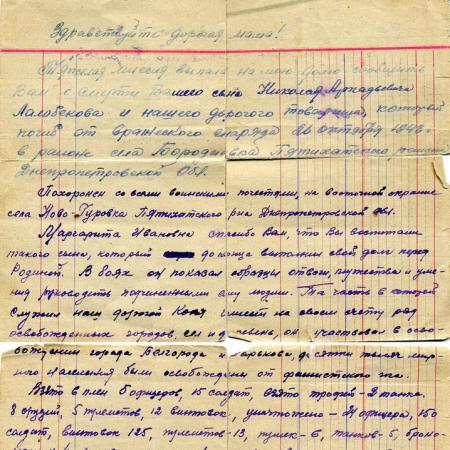 Здравствуйте дорогая мама!
Тяжелая миссия выпала на мою долю сообщить
Вам о смерти Вашего сына Николая Аркадьевича
и нашего дорогого товарища, который
погиб от вражеского снаряда 26 октября 1943 г
в районе села Пятихатского района
Днепропетровской обл.
Похоронен со всеми воинскими почестями, на восточной окраине
села Ново-Гуровка Пятихатского р-на Днепропетровской обл.
Маргарита Ивановна спасибо Вам, что Вы воспитали
такого сына, который до конца выполнил свой долг перед
Родиной. В боях он показал образцы отваги, мужества и уме-
ния руководить подчиненными ему людьми. Та часть в которой
служил наш дорогой Коля имеет на своем счету ряд
освобожденных городов, сел и деревень, он участвовал в осво-
бождении города Белгорода и Харькова, десятки тысяч мир-
ного населения были освобождены от фашистского ига.
Взято в плен 5 офицеров, 15 солдат, взято трофей - 2 танка,
8 орудий, 5 пулеметов, 12 винтовок, уничтожено - 4 офицера, 150
солдат, винтовок 125, пулеметов - 13, пушек - 6, танков - 5, броно-